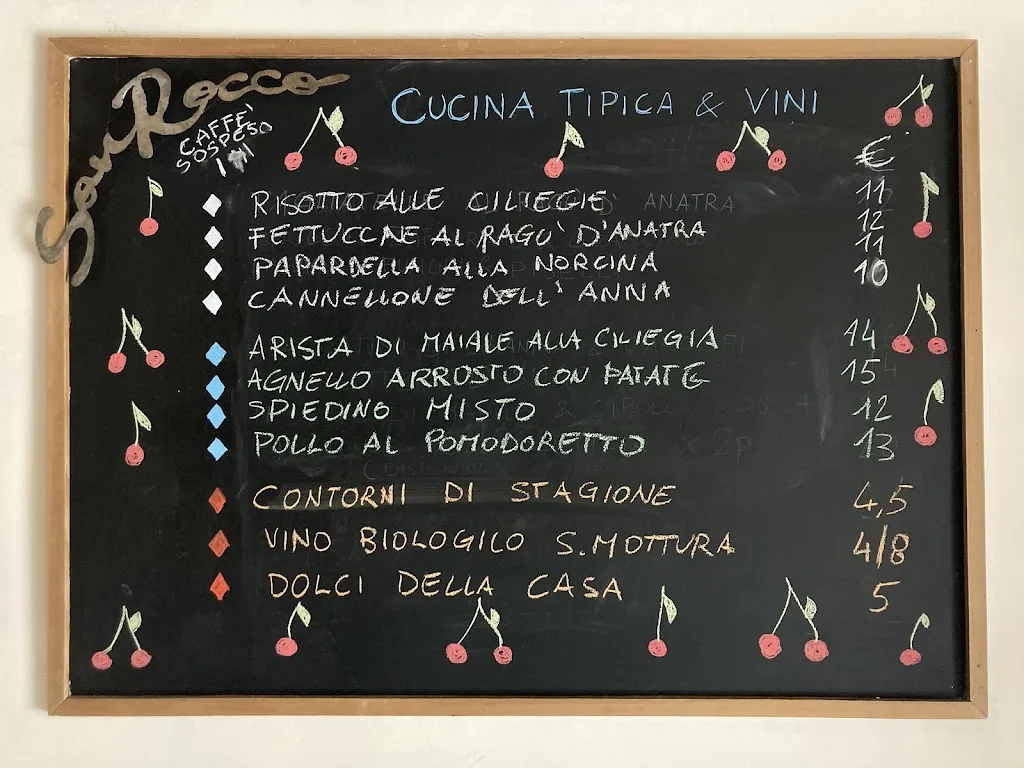 San Rocco
CAFFE'
SOSPESO
CUCINA TIPICA & VINI
€
RISOTTO ALLE CILIEGIE 11
FETTUCCINE AL RAGU' D'ANATRA 12
PAPARDELLA ALLA NORCINA 11
CANNELLONE DELL'ANNA 10
ARISTA DI MAIALE ALLA CILIEGIA 14
AGNELLO ARROSTO CON PATATE 15
SPIEDINO MISTO 12
POLLO AL POMODORETTO 13
CONTORNI DI STAGIONE 4,5
VINO BIOLOGICO S.MOTTURA 4/8
DOLCI DELLA CASA 5